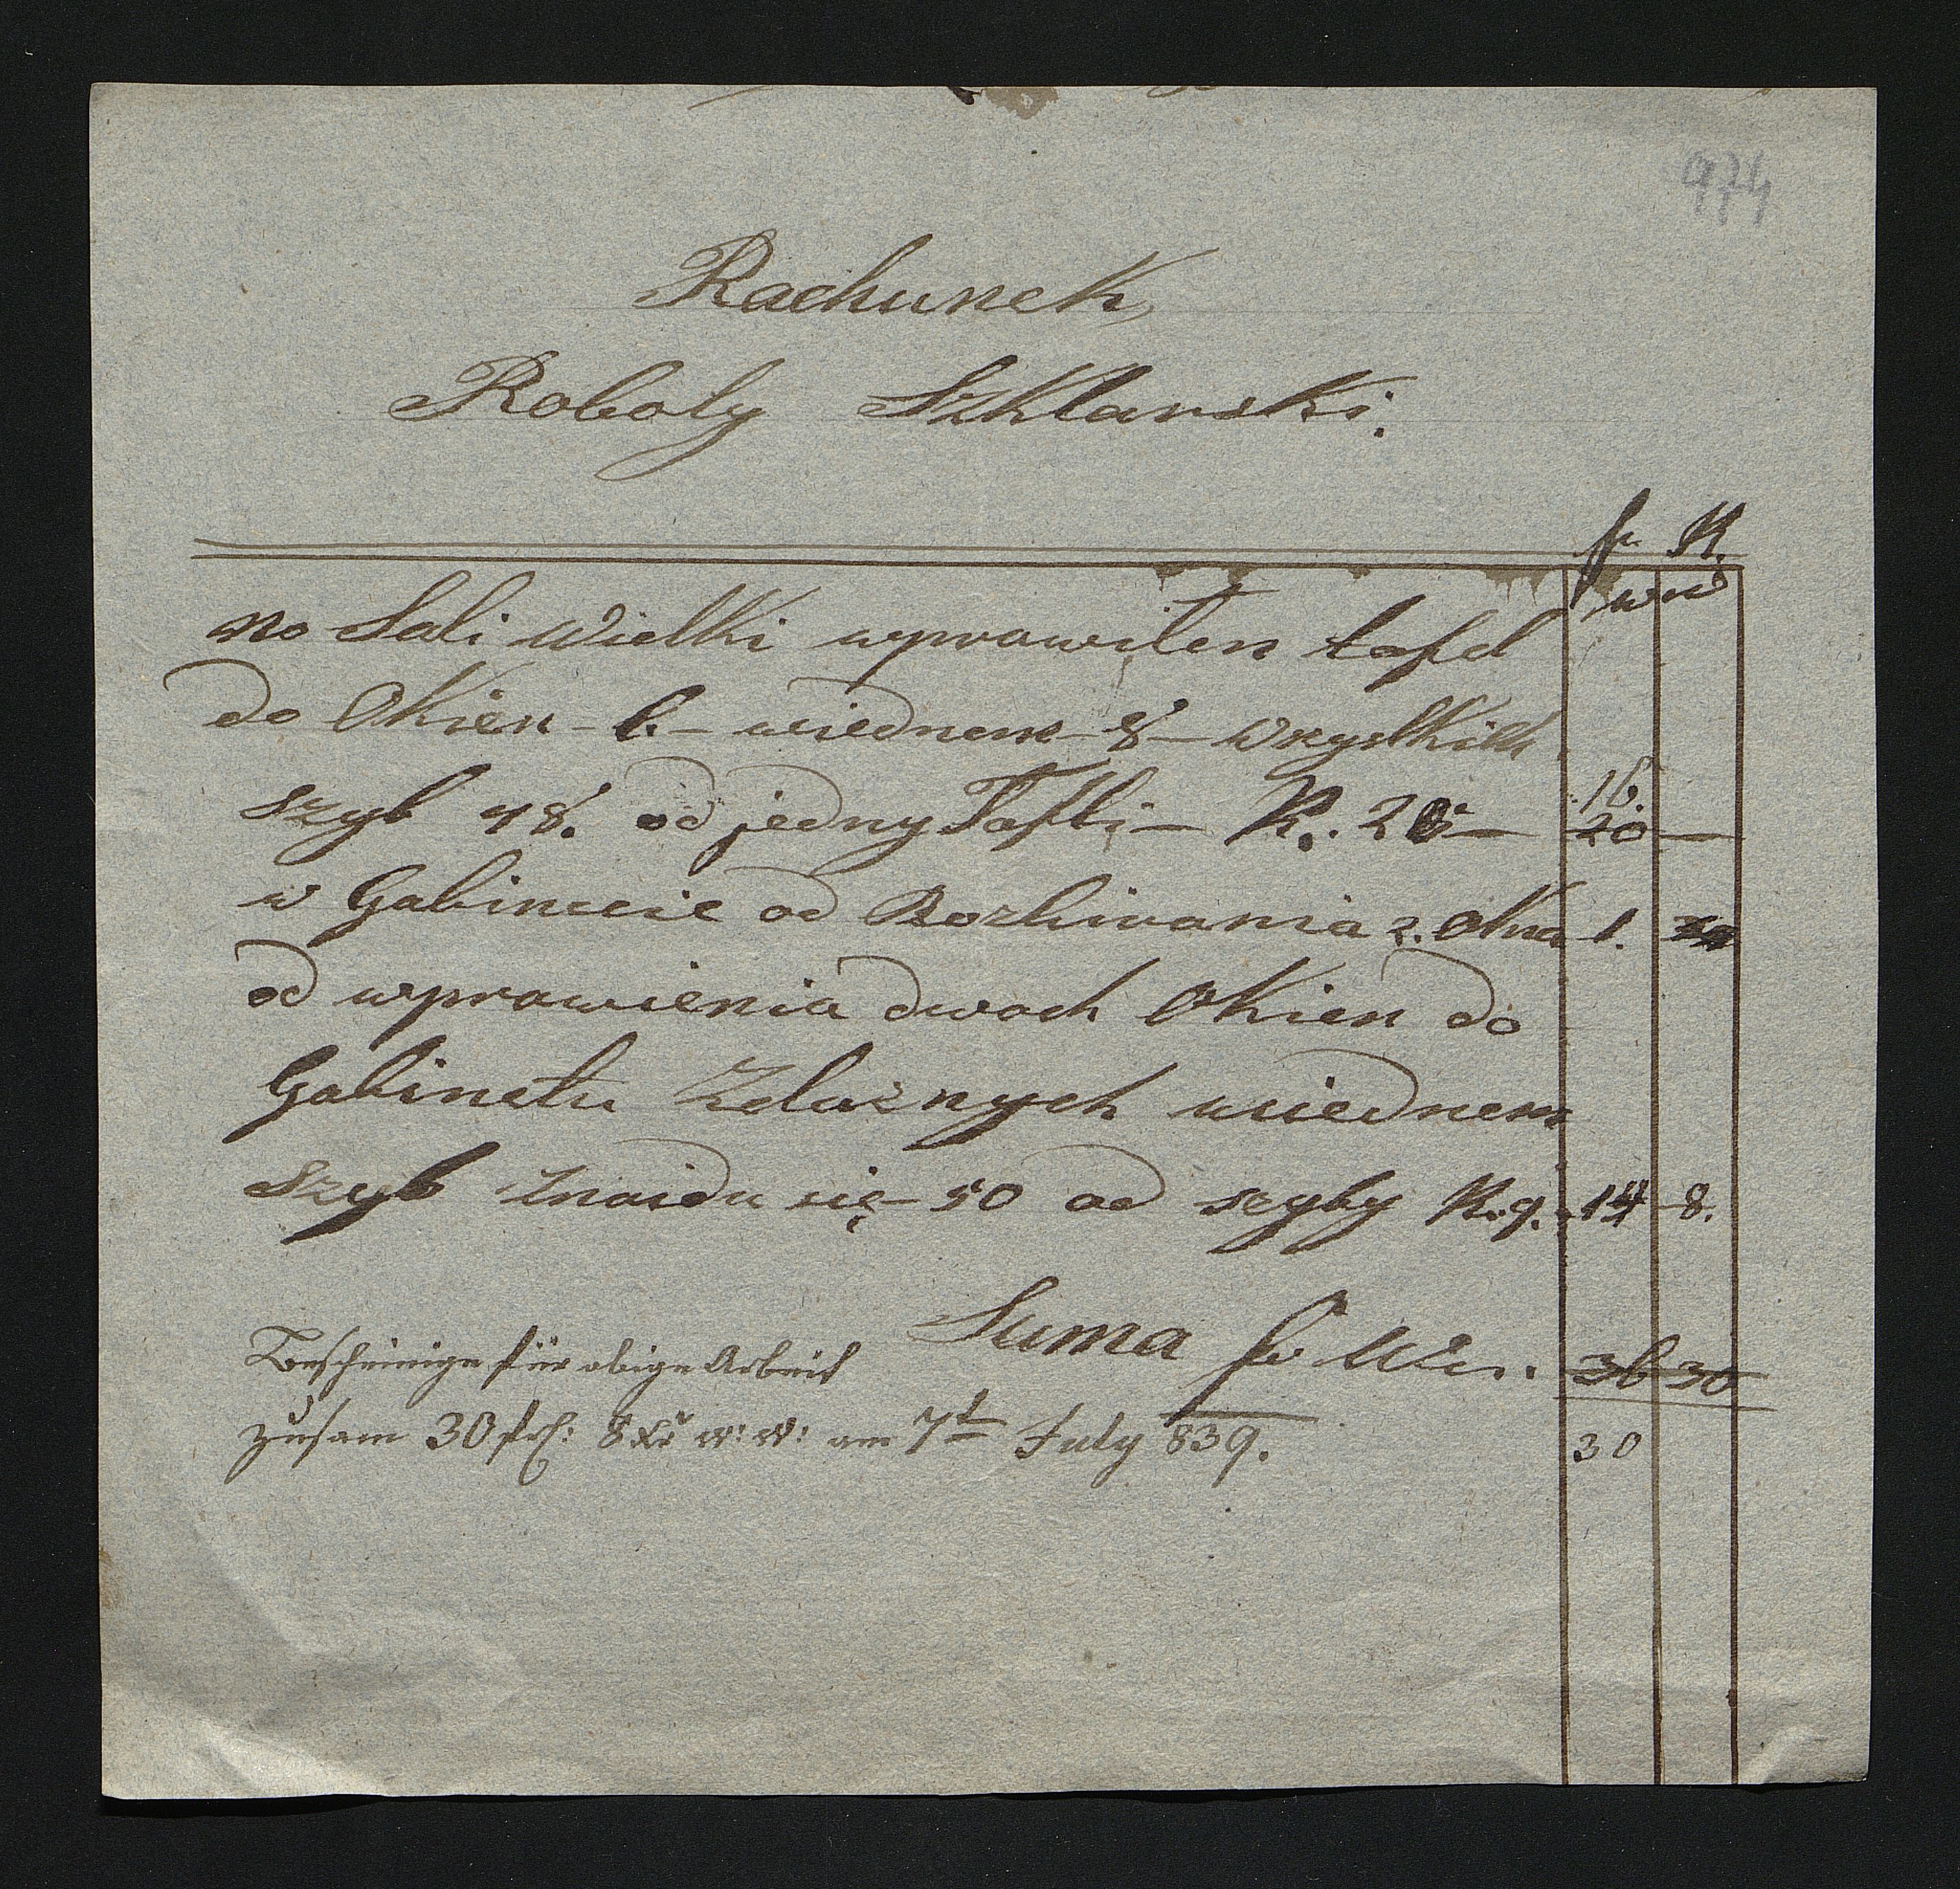 974
Rachunek
Roboty Szklarski.
fr. K.
w w
no Sali wielki wprawiłen tafel
do Okien - 6. - wiednem - 8 - wszystkich
szyb 48. od jedny Tafli - K. 20 - 16. 20 -
w Gabinecie od Rozbiwania 2. Okna 1.
od wprawienia dwoch Okien do
Gabinetu Zelaznych wiednem
szyb znaidu się - 50 od szyby K. 9. 14 - 8.
Suma fr Ww. 36 30
Bescheinige für obige Arbeit
zusam 30 fr: 8 xr w: w: am 7t July 839. 30